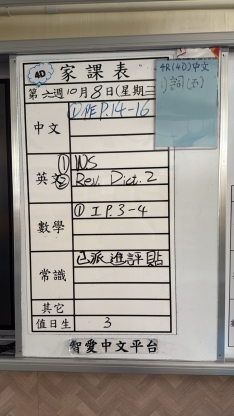 4D 家課表
第六週10月8日(星期二
4R(4D)中文
1) 詞(五)
中文 ① NE P.14-16
英文 ① WS
② Rev. Dict. 2
數學 ① I P.3-4
常識 已派進評貼
其它
值日生 3
智愛中文平台